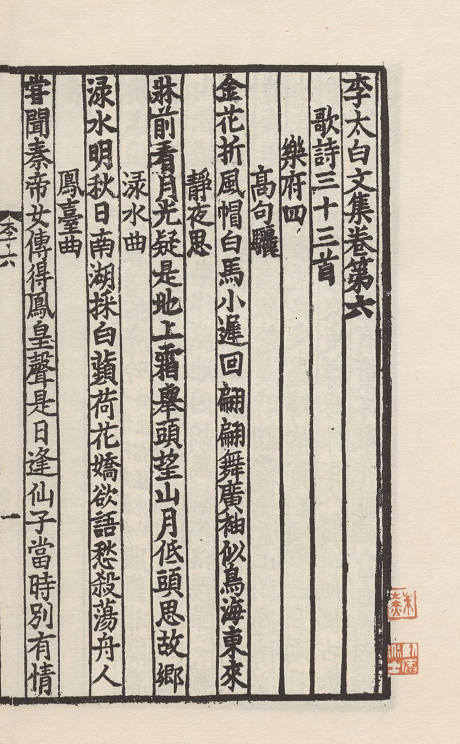 李太白文集卷第六
歌詩三十三首
樂府四
高句驪
金花折風帽白馬小遲回翩翩舞廣袖似鳥海東來
靜夜思
牀前看月光疑是地上霜舉頭望山月低頭思故鄉
淥水曲
淥水明秋日南湖採白蘋荷花嬌欲語愁殺蕩舟人
鳳臺曲
嘗聞秦帝女傳得鳳皇聲是日逢仙子當時別有情
李六
一